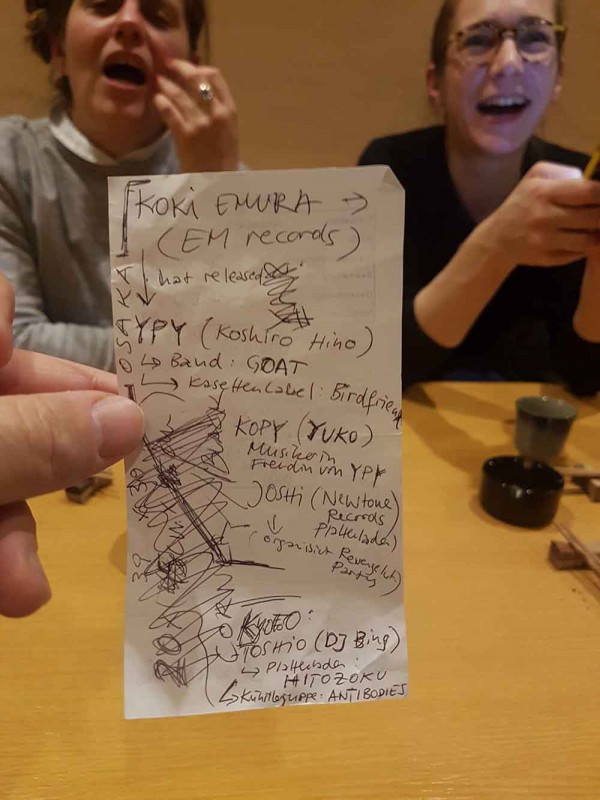 KOKI EMURA →
(EM records)
OSAKA
↓ hat released
YPY (Koshiro Hino)
↳ Band: GOAT
↳ KasettenLabel: Birdfriend
KOPY (YUKO)
Musikerin
Freundin von YPY
OSHI (Newtone
Records
Plattenladen)
organisiert
Party
KYOTO:
TOSHIO (DJ Bing)
↳ Plattenladen:
HITOZOKU
↳ Künstlegruppe: ANTIBODIES